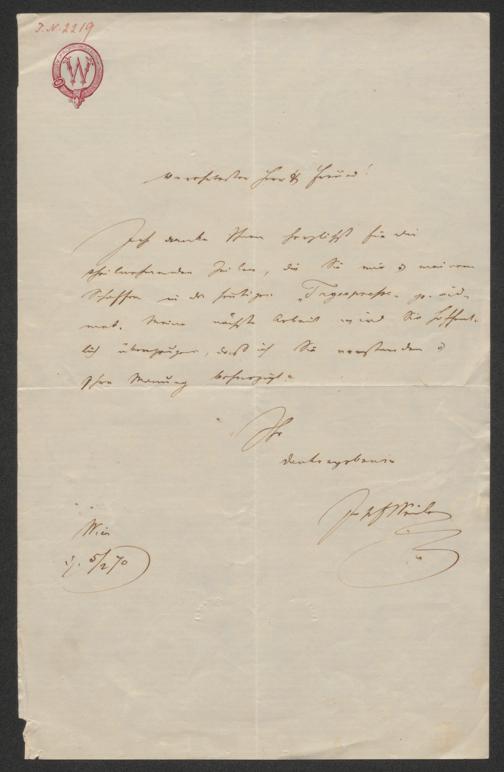 J.N. 2219
W
verehrtester Herr & Freund!
Ich danke Ihnen herzlichst für die
theilnehmenden Zeilen, die Sie mir & meinem
Schaffen in der heutigen "Tagespresse" ge-wid-
met. Meine nächste Arbeit wird Sie hoffent-
lich überzeugen, daß ich Sie verstanden &
Ihre Meinung beherzigt.
Ihr
dankergebener
Wien
5/2 70